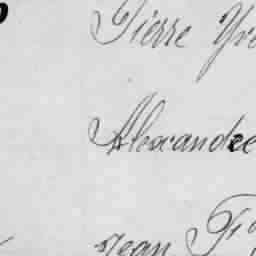 Pierre Yv
Alexandre
Jean Fr